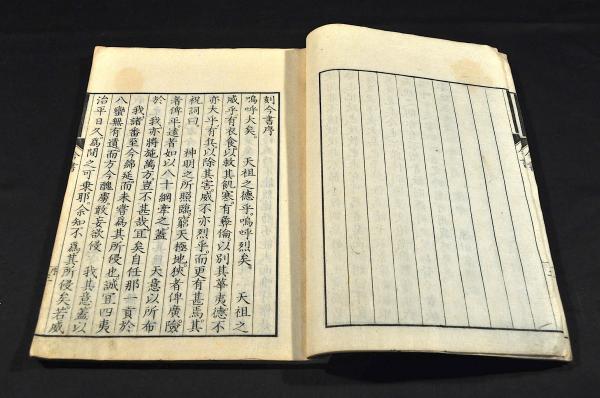 刻今書序
嗚呼大矣。　天祖之德乎。嗚呼烈矣。　天祖之
威乎有衣食以救其飢寒。有彝倫以別其華夷德不
亦大乎有兵以除其害。威不亦烈乎。而更有甚焉。其
祝詞曰。　神明之所照臨。窮天極地。狹者俾廣。險
者俾平遠者如以八十綱牽之蓋　天意以所布
於　我亦將施萬方豈不甚哉宜矣自任那一貢於
我諸番至今綿延而未嘗爲其所侵也誠宜四夷
八蠻無有遺而方今醜虜敢妄欲侵　我其意蓋以
治平日久爲間之可乘耶余知不爲其所侵矣若威